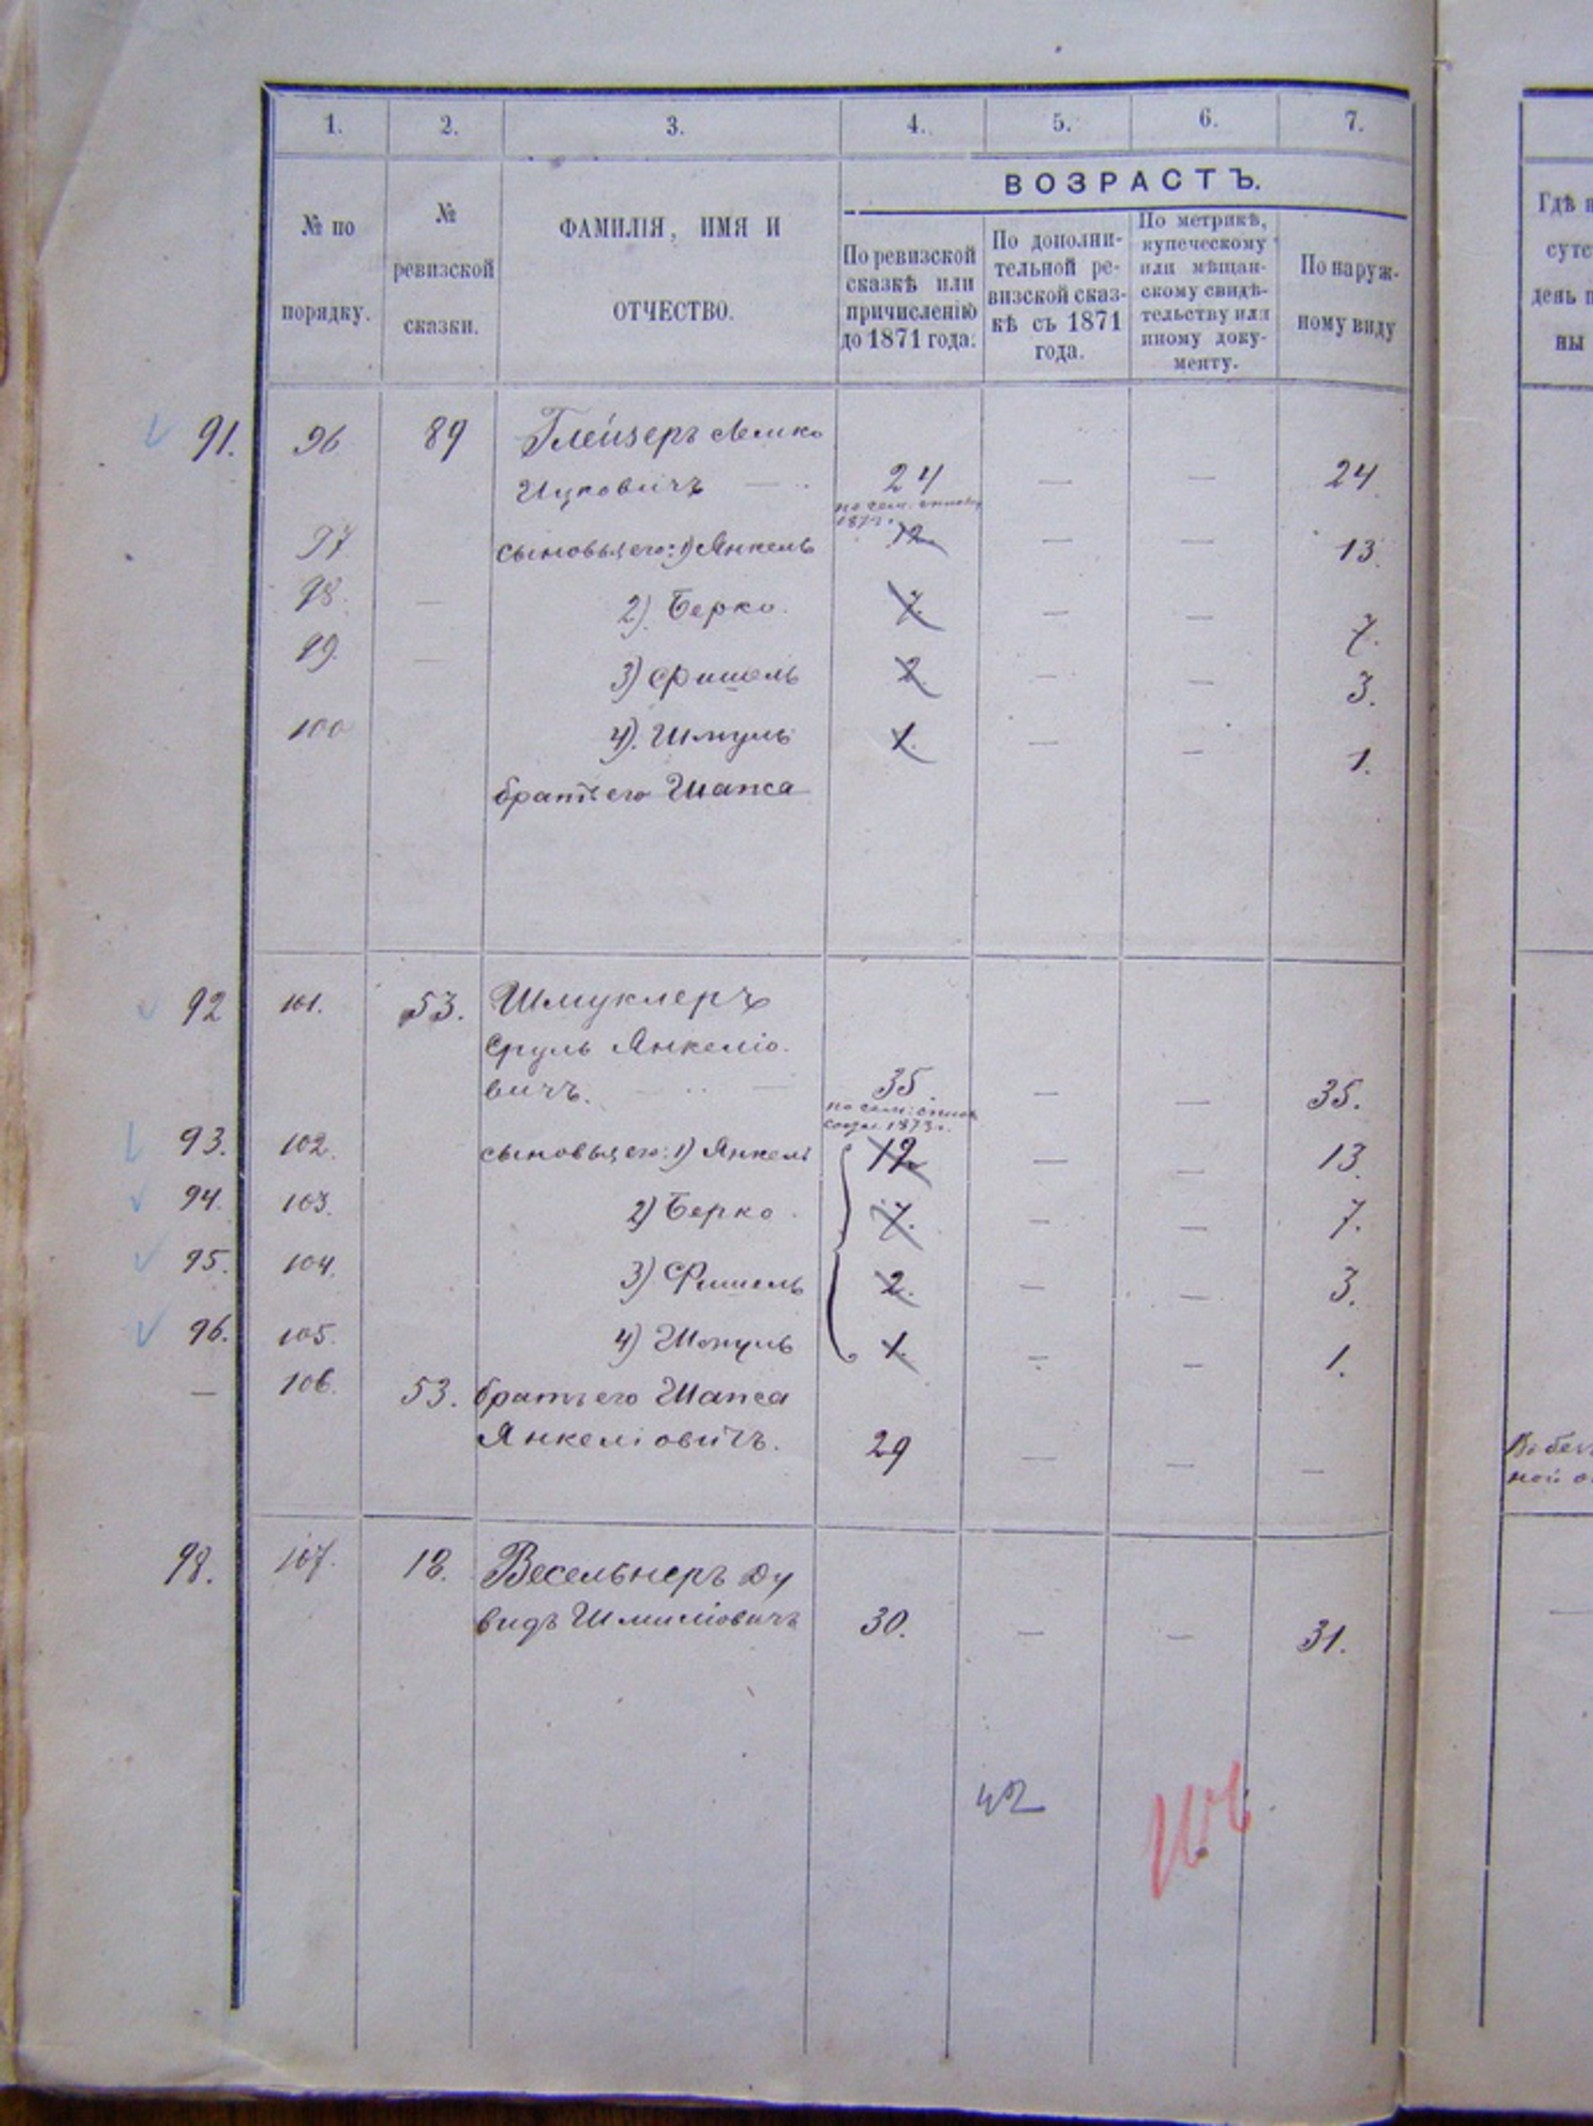 1. 2. 3. 4. 5. 6. 7.
ВОЗРАСТЪ.
№ по
порядку.
№
ревизской
сказки.
ФАМИЛІЯ, ИМЯ И
ОТЧЕСТВО.
По ревизской
сказкѣ или
причисленію
до 1871 года.
По дополни-
тельной ре-
визской сказ-
кѣ съ 1871
года.
По метрикѣ,
купеческому
или мѣщан-
скому свидѣ-
тельству или
иному доку-
менту.
По наруж-
ному виду
Гдѣ
день
ны
91. 96 89 Глейзеръ Лейко
Ицковичъ — 24 — — 24
по сем. списку
187
97 сыновья его: 1) Янкель 12 — — 13
98. — 2) Берко. 7. — — 7.
99. — 3) Фишель 2 — — 3.
100 4) Шмуль 1. — — 1.
братъ его Шапса
92 101. 53. Шмуклеръ
Сруль Янкеліо-
вичъ. — 35. — — 35.
по сем. списк
1873 г.
93. 102. сыновья его: 1) Янкель 12 — — 13
94. 103. 2) Берко. 7. — — 7.
95. 104. 3) Фишель 2. — — 3.
96. 105. 4) Шмуль 1. — — 1.
— 106. 53. братъ его Шапса
Янкеліовичъ. 29 — — —
ной о
98. 107. 18. Весельнеръ Ду
видъ Шмиліовичъ 30. — — 31.
42